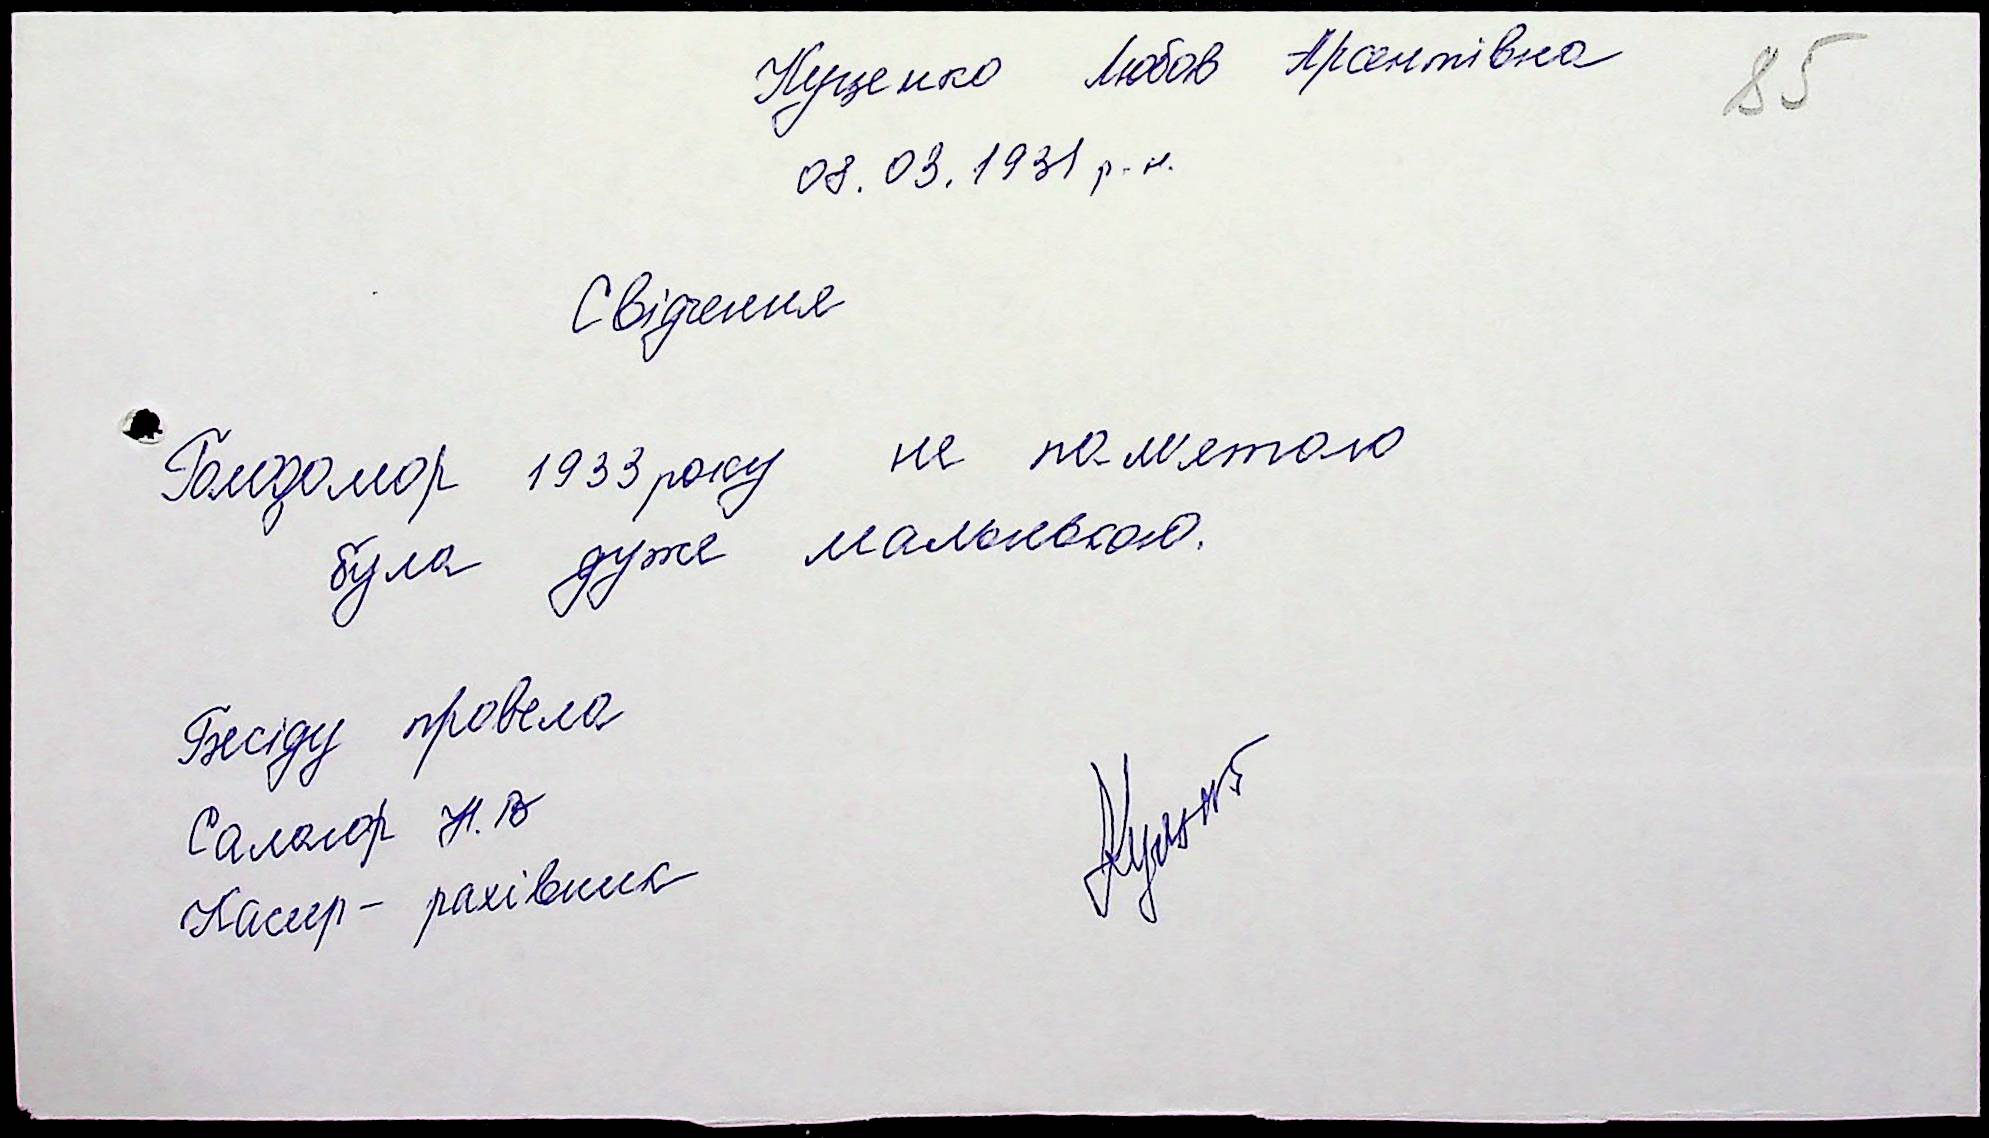 Куценко Любов Арсентівна
85
08.03.1931 р.н.
Свідчення
Голодомор 1933 року не пам'ятаю
була дуже маленькою.
Бесіду провела
Салогор Н.В
Касир - рахівник